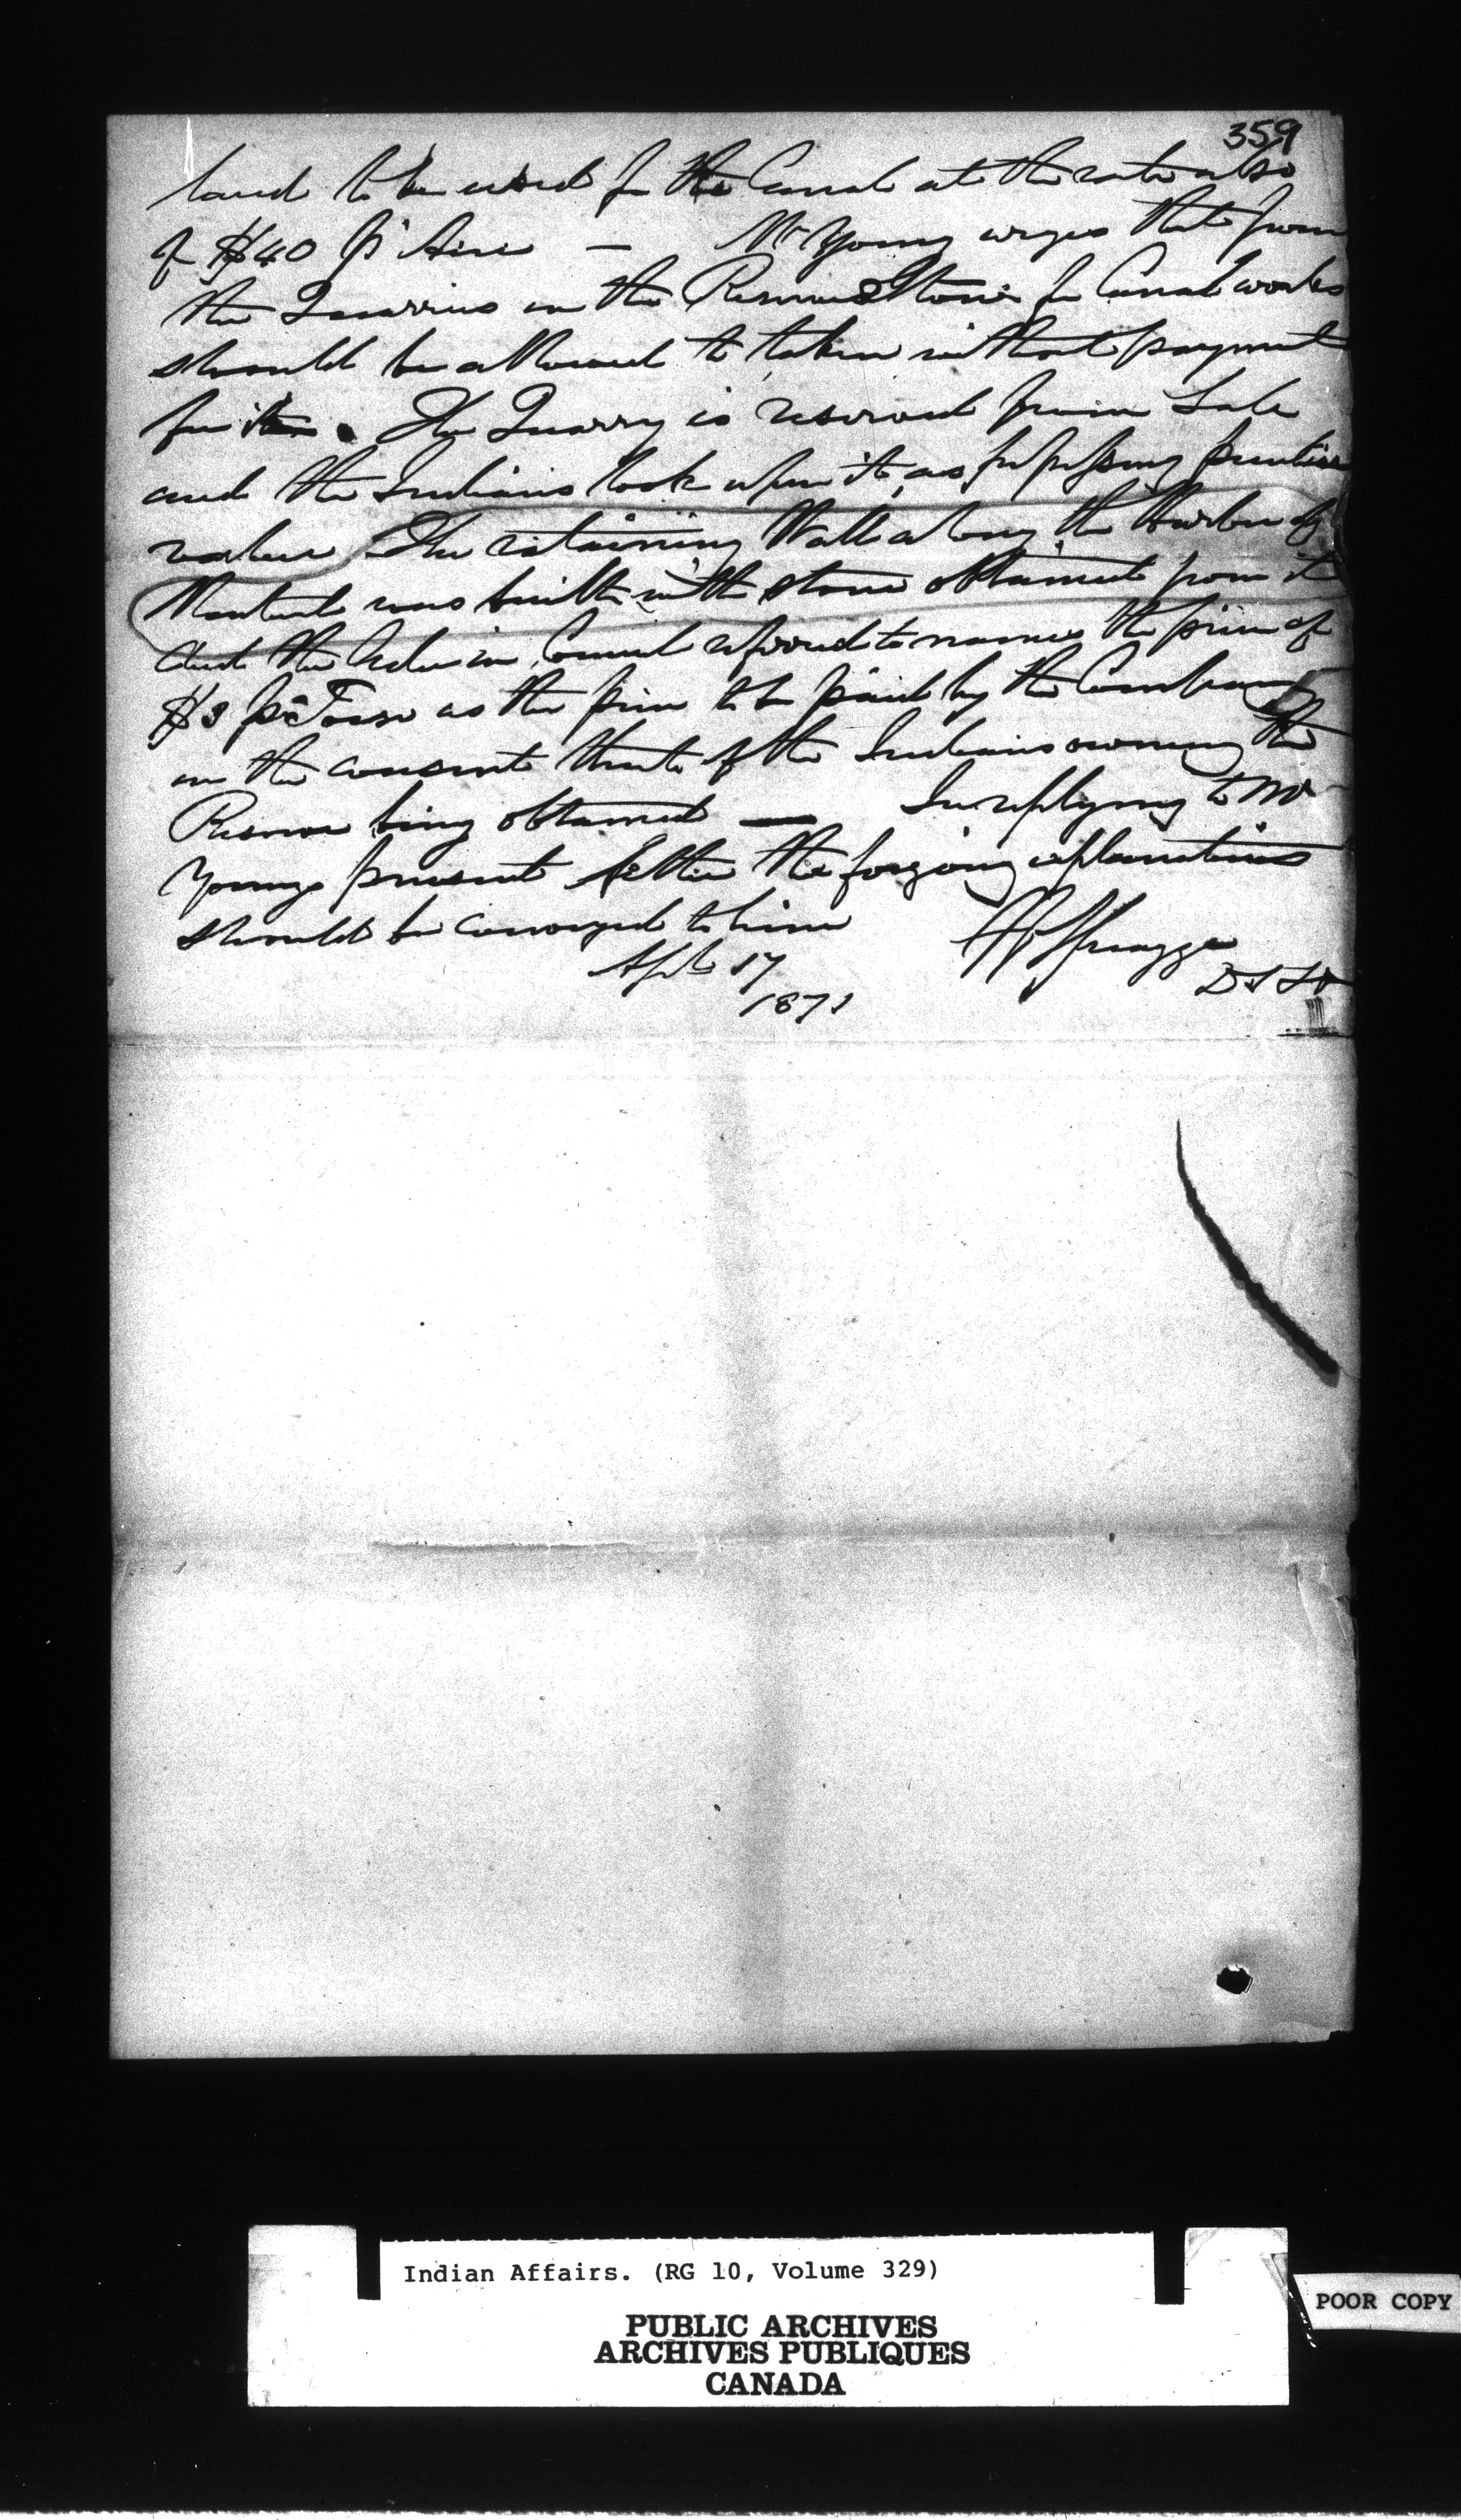 359
land to be used for the Canal at the rate also
of $40 pr Acre — Mr Young urges that from
the Quarries on the Reserve Stone for Canal works
should be allowed to taken without payment
for it. The Quarry is reserved from Sale
and the Indians look upon it as possessing peculiar
value The retaining Wall along the Harbor of
Montreal was built with stone obtained from it
And the Order in Council referred to names the price of
$3 pr Toise as the price to be paid by the Company
on the consent thereto of the Indians owning the
Reserve being obtained — In replying to Mr
Youngs present letter the forgoing explanations
should be conveyed to him
Spragge
April 17
1871
Indian Affairs. (RG 10, Volume 329)
PUBLIC ARCHIVES
ARCHIVES PUBLIQUES
CANADA
POOR COPY